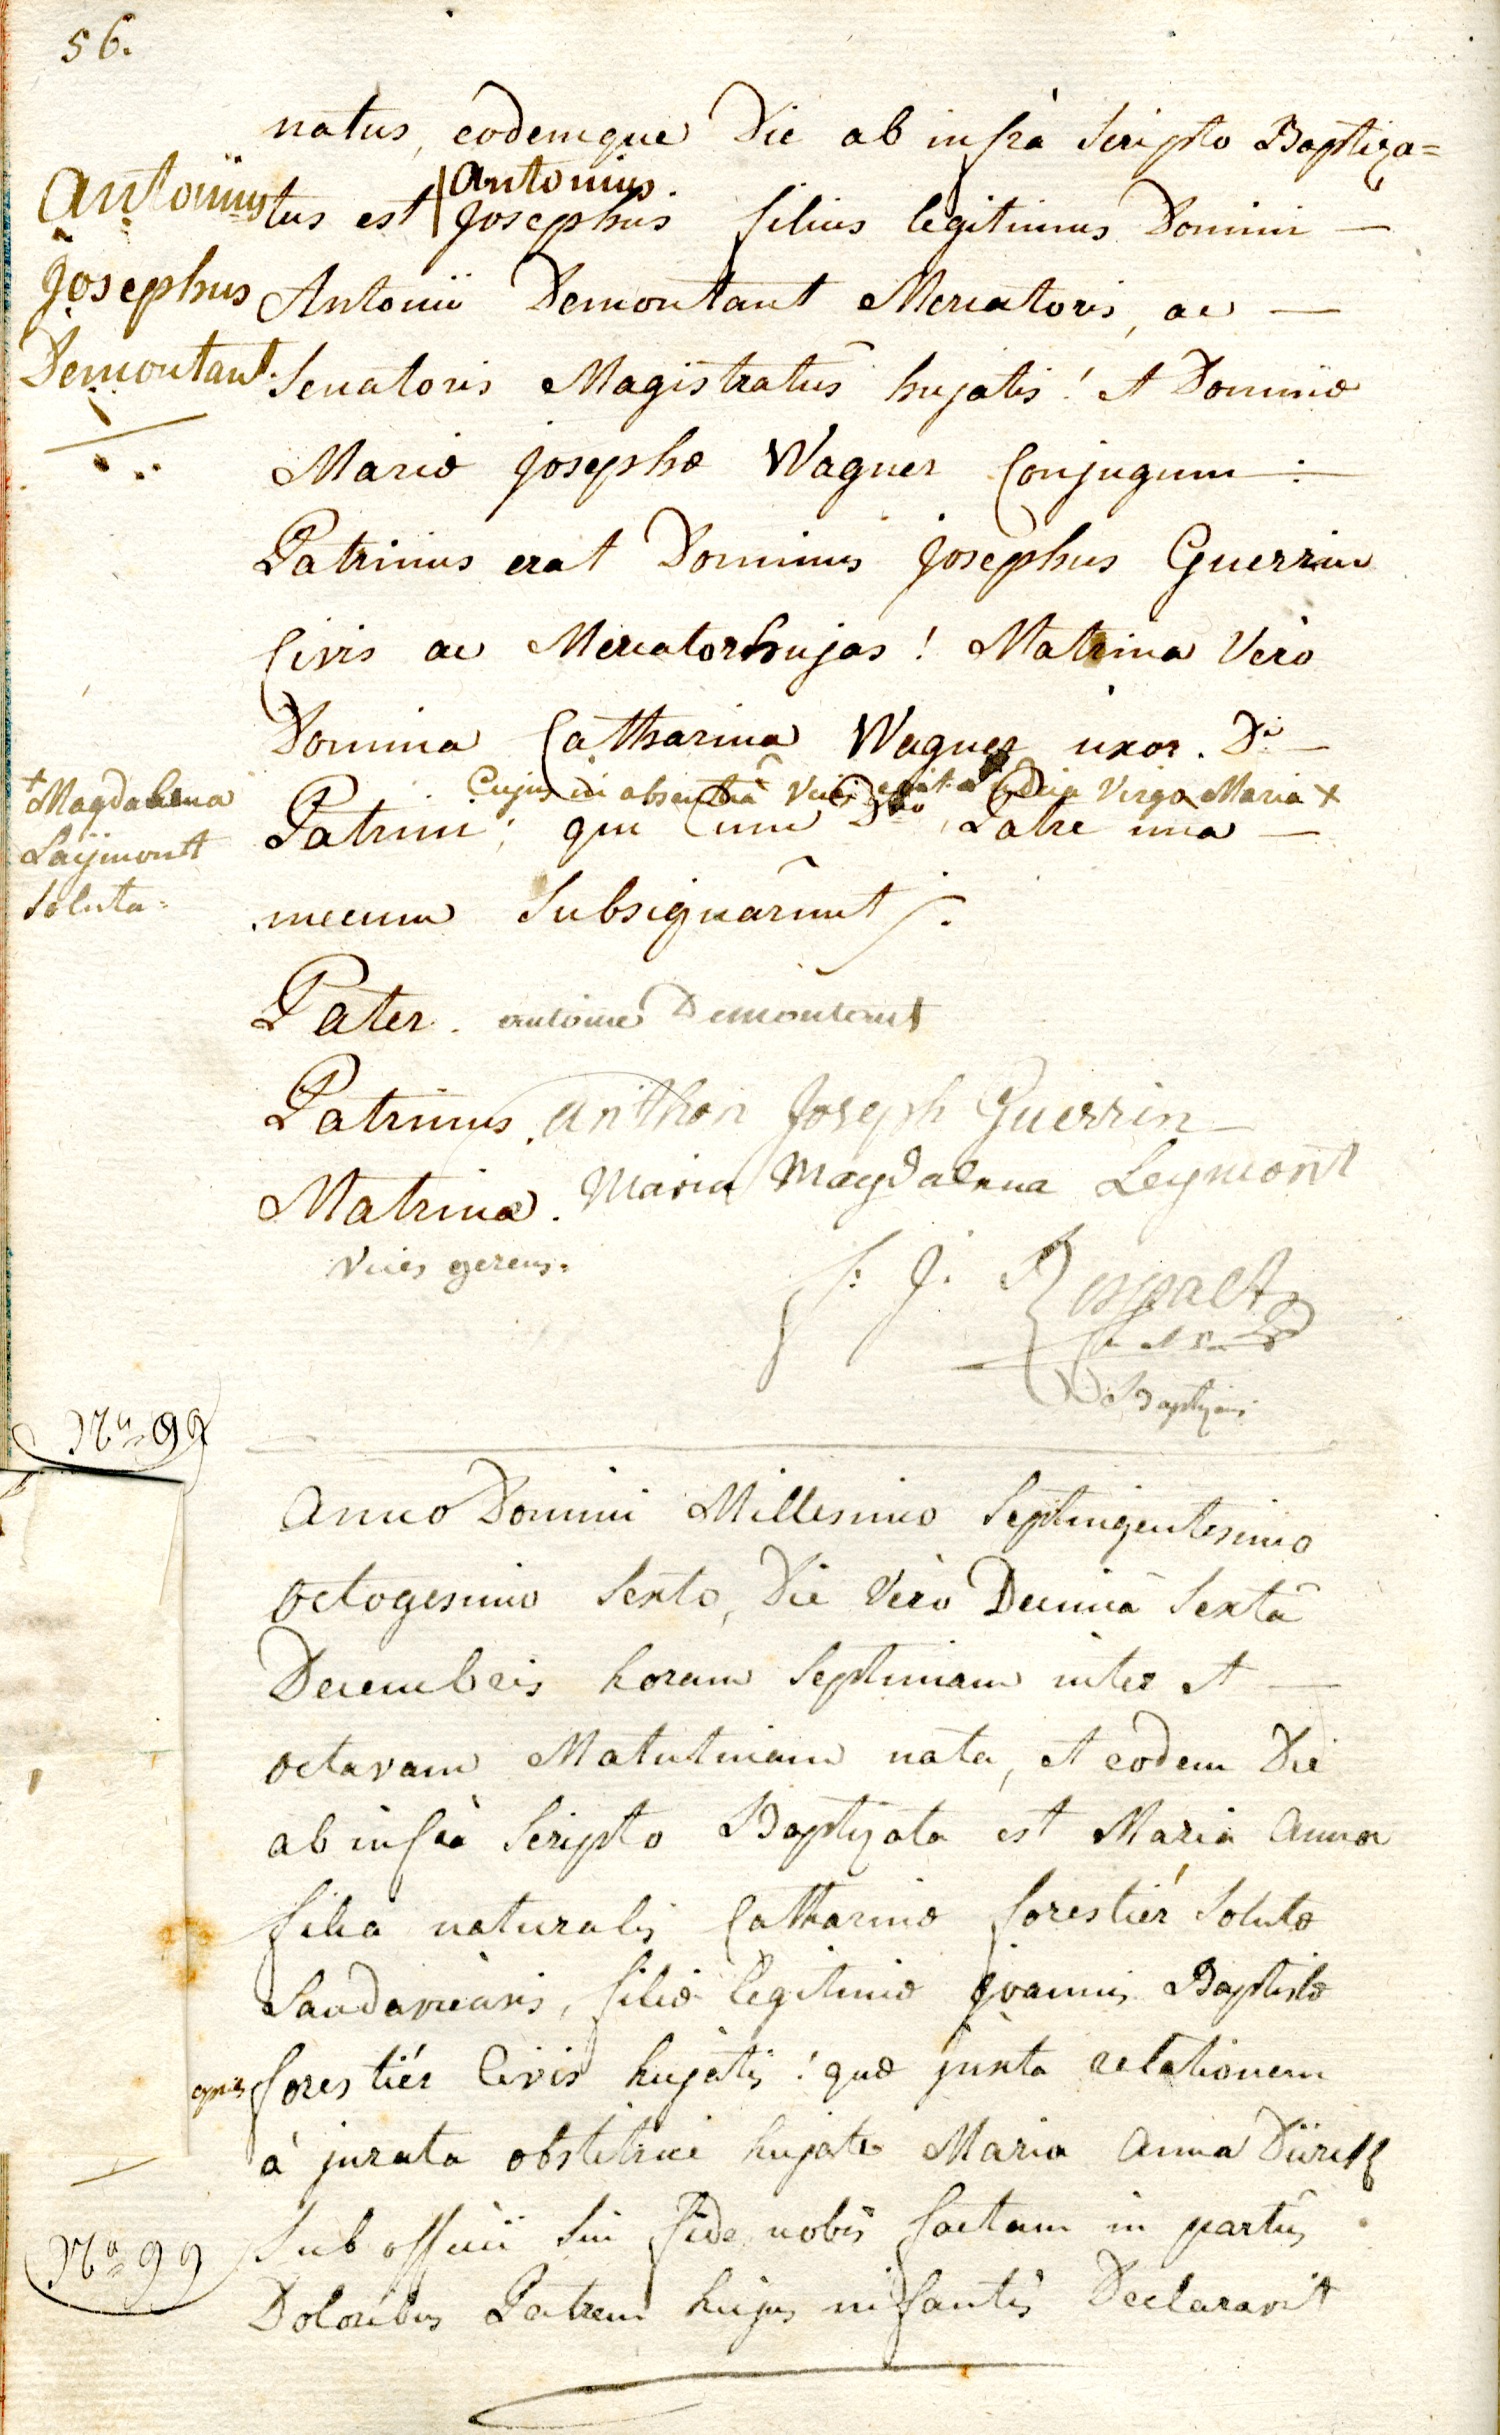 56.
natus, eodemque Die ab infrà Scripto Baptiza=
Antonius.
tus est Josephus filius legitimus Domini —
Antonii Demontant Mercatoris, ac —
Senatoris Magistratûs hujatis! et Dominæ
Mariæ Josephæ Wagner Conjugum :
Patrinus erat Dominus Josephus Guerrin
Civis ac Mercator hujas! Matrina Verò
Domina Catharina Wagner uxor. Di —
Cujus in absentiâ Vices egit Virgo Maria +
Patrini; qui Cum Dno Patre unà —
mecum Subsignârunt.
Antonius
Josephus
Demontant.
+ Magdalena
Laÿmont
Soluta.
Pater. antoine Demontant
Patrinus. anthon Joseph Guerrin
Matrina. Maria Magdalena Leymont
Vices gerens.
f: J. Respact
Baptizans
Nro 98
Anno Domini Millesimo Septingentesimo
octogesimo Sexto, Die Verò Decimâ Sextâ
Decembris horam Septimam inter et —
octavam Matutinam nata, et eodem Die
ab infrà Scripto Baptizata est Maria Anna
filia naturalis Catharinæ forestiér Solutæ
Saudaviensis, filiæ legitimæ Joannis Baptistæ
forestiér Civis hujatis! quæ juxta relationem
à jurata obstetrice hujate Maria Anna Düritz
Sub officii Sui fide nobis factam in partûs
Doloribus Patrem hujus infantis Declaravit
Nro 99